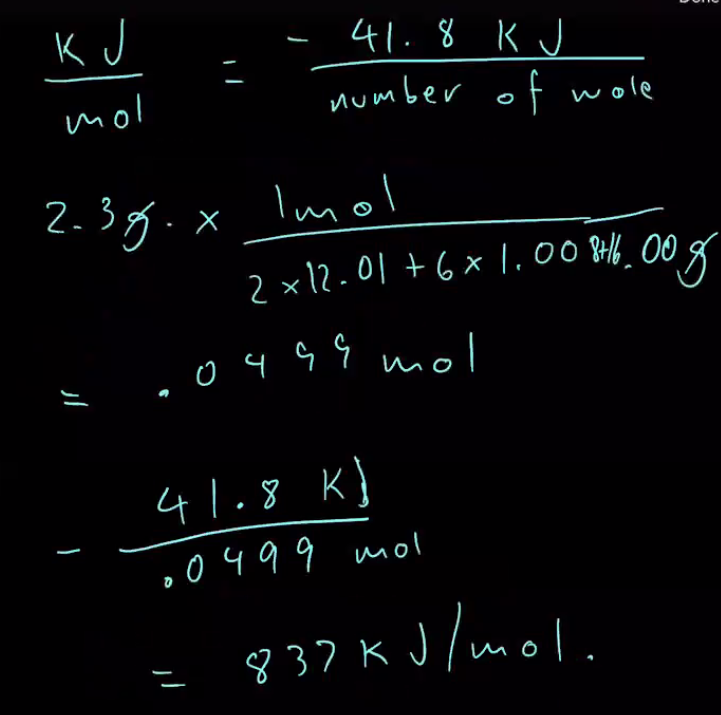 KJ/mol = - 41.8 KJ/number of mole
2.3g. x 1mol/2x12.01+6x1.008+16.00g
= .0499 mol
- 41.8 KJ/.0499 mol
= 837 KJ/mol.